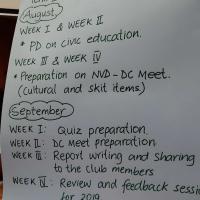 August
WEEK I & WEEK II
* PD on civic education.
WEEK III & WEEK IV
* Preparation on NVD-DC Meet.
(cultural and skit items)
September
WEEK I: Quiz preparation.
WEEK II: DC Meet preparation
WEEK III: Report writing and sharing
to the club members
WEEK IV: Review and feedback sessi
for 2019